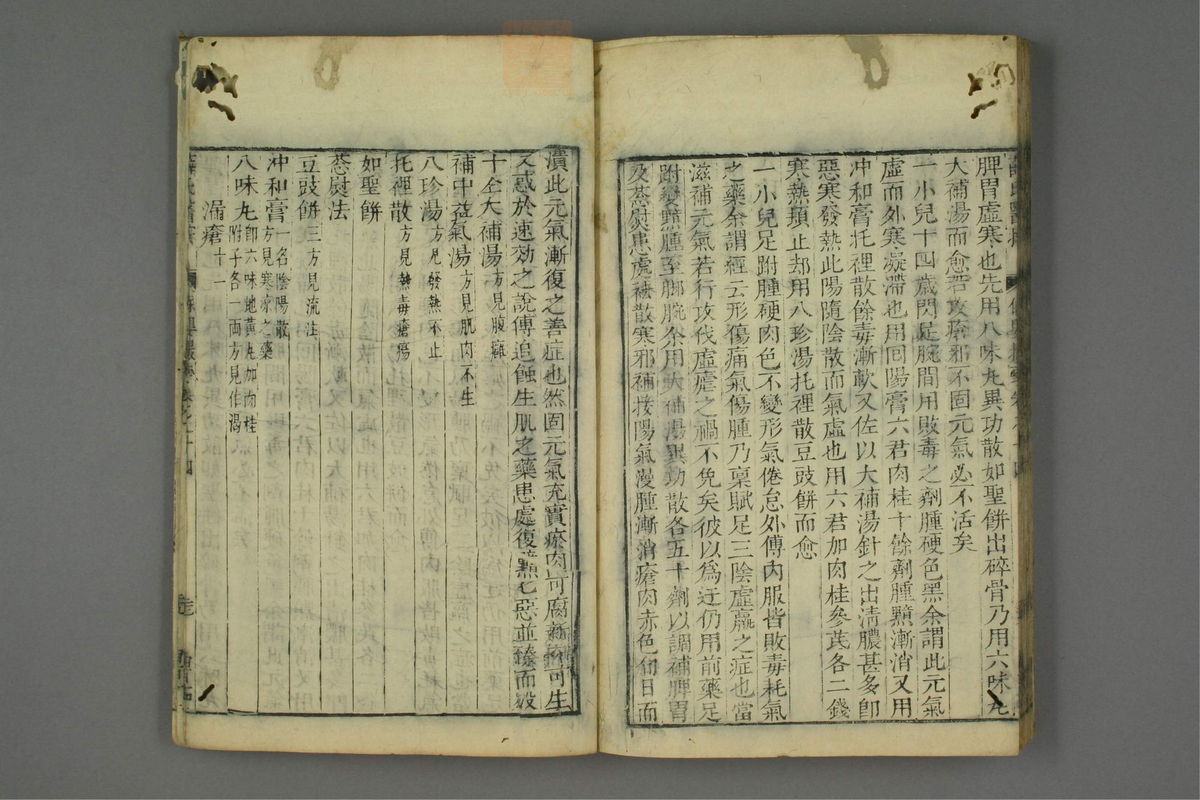 脾胃虛寒也先用八味丸異功散如聖餅出碎骨乃用六味丸
大補湯而愈若攻瘀邪不固元氣必不活矣
一小兒十四歲閃足腕間用敗毒之劑腫硬色黑余謂此元氣
虛而外寒凝滯也用回陽膏六君肉桂十餘劑腫黯漸消又用
冲和膏托裡散餘毒漸軟又佐以大補湯針之出清膿甚多卽
惡寒發熱此陽隨陰散而氣虛也用六君加肉桂參芪各二錢
寒熱頊止却用八珍湯托裡散豆豉餅而愈
一小兒足跗腫硬肉色不變形氣倦怠外傅內服皆敗毒耗氣
之藥余謂經云形傷痛氣傷腫乃稟賦足三陰虛羸之症也當
滋補元氣若行攻伐虛虛之禍不免矣彼以為迂仍用前藥足
跗變黯腫至脚腕余用大補湯異功散各五十劑以調補脾胃
及葱熨患處袪散寒邪補接陽氣漫腫漸消瘡肉赤色旬日而
潰此元氣漸復之善症也然固元氣充實瘀肉可腐新肉可生
又惑於速効之說傅追蝕生肌之藥患處復黯惡並臻而歿
十全大補湯方見腹癰
補中益氣湯方見肌肉不生
八珍湯方見發熱不止
托裡散方見熱毒瘡瘍
如聖餅
葱熨法
豆豉餅三方見流注
冲和膏一名陰陽散方見寒凉之藥
八味丸卽六味地黃丸加肉桂附子各一兩方見作渴
漏瘡十一